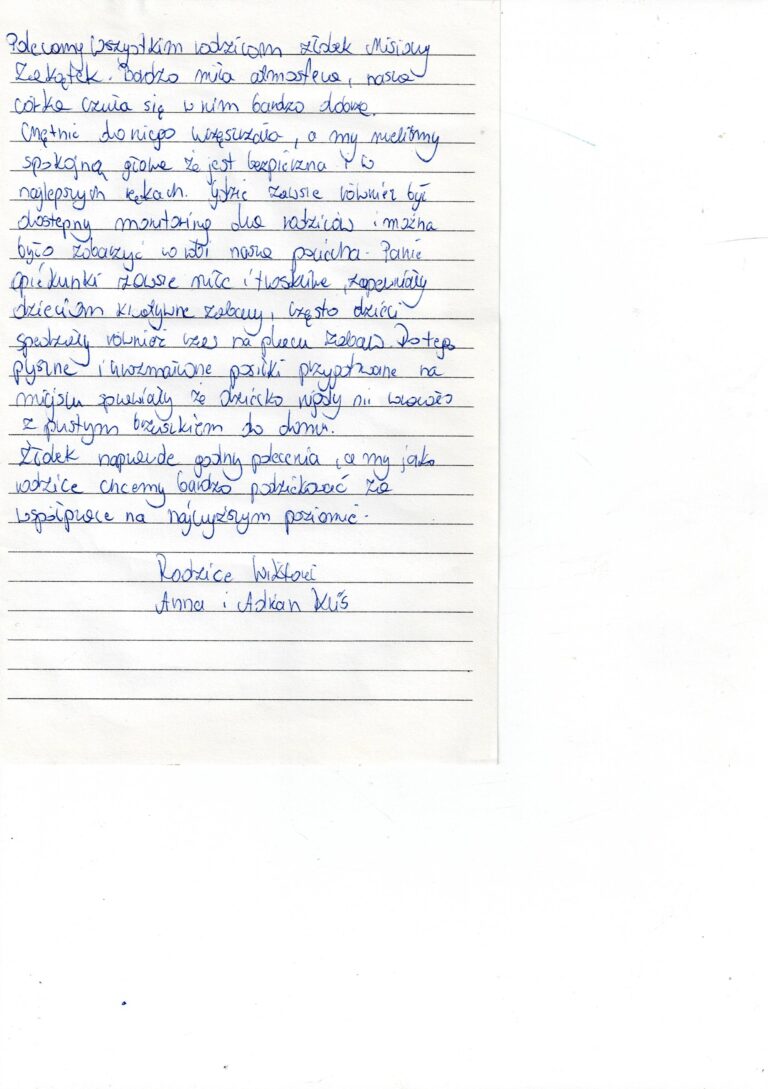 Polecamy wszystkim rodzicom żłobek Misiowy
Zakątek. Bardzo miła atmosfera, nasza
córka czuła się w nim bardzo dobrze.
Chętnie do niego uczęszczała, a my mieliśmy
spokojną głowę że jest bezpieczna i w
najlepszych rękach. Gdzie zawsze również był
dostępny monitoring dla rodziców i można
było zobaczyć co robi nasza pociecha. Panie
opiekunki zawsze miłe i troskliwe, zapewniały
dzieciom kreatywne zabawy, często dzieci
spędzały również czas na placu zabaw. Do tego
pyszne i urozmaicone posiłki przygotowane na
miejscu sprawiały że dziecko nigdy nie wracało
z pustym brzuszkiem do domu.
Żłobek naprawdę godny polecenia, a my jako
rodzice chcemy bardzo podziękować za
współpracę na najwyższym poziomie.
Rodzice Wiktorii
Anna i Adrian Kuś